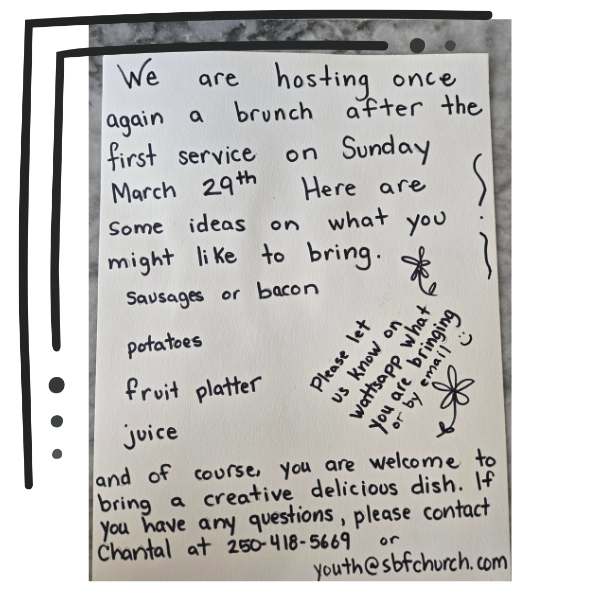 We are hosting once
again a brunch after the
first service on Sunday
March 29th Here are
some ideas on what you
might like to bring.
sausages or bacon
potatoes
fruit platter
juice
Please let
us know on
wattsapp what
you are bringing
or by email :)
and of course, you are welcome to
bring a creative delicious dish. If
you have any questions, please contact
Chantal at 250-418-5669 or
youth@sbfchurch.com